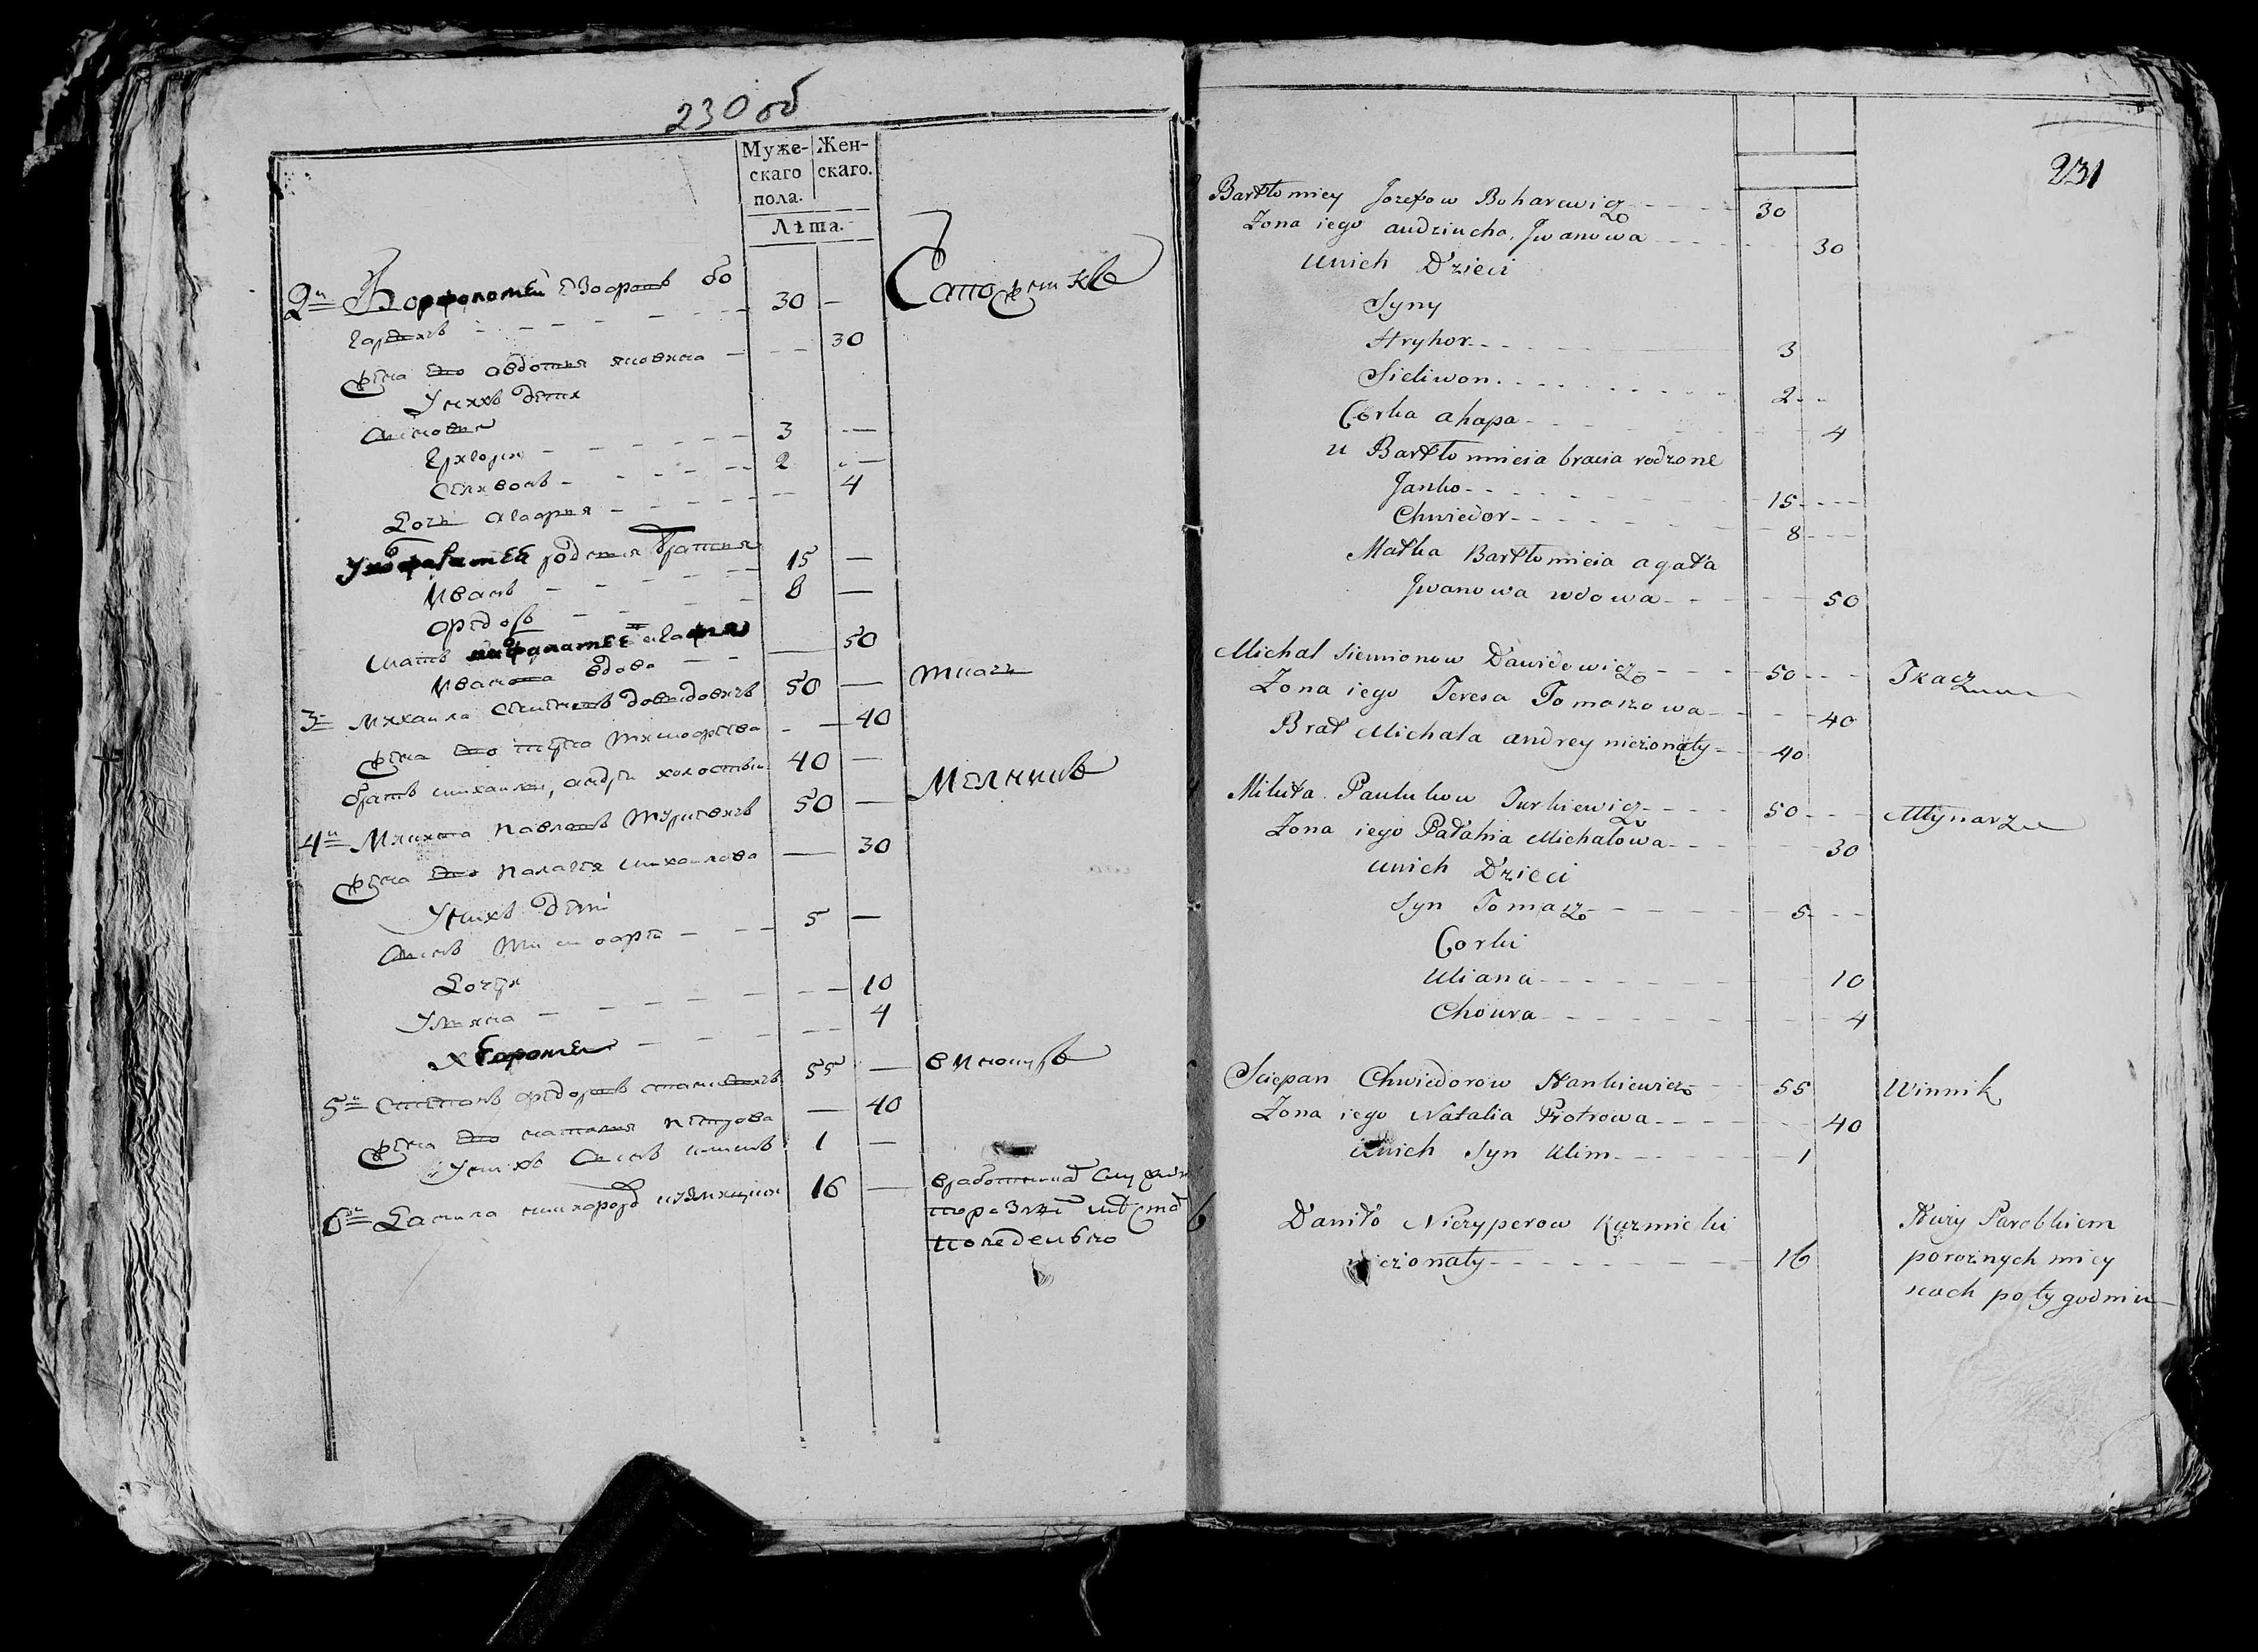 230 об
Муже- Жен-
скаго скаго.
пола.
Лѣта.
2й Ворфоломей Езофовъ бо
гаревичъ 30 — Сапожникъ
жена его авдотья яновнна 30
У нихъ дети
Сыновья
Грхгорхи 3
Селхвонъ 2
Дочь агафья 4
родныя братья
Иванъ 15 —
Федоръ 8 —
Мать агафия
Иванова вдова 50
3й Михаила Семеновъ довыдовичъ 50 — ткачь
жена его тереса тимофеева 40
братъ михайлы, андрей холостый 40 —
4й Микита павловъ турцевичъ 50 — Мелникъ
жена его палагея михайлова 30
У нихъ дети
Сынъ Тимофей 5 —
Дочери
Ульяна 10
4
5й Степанъ федоровъ станкевичъ 55 — винокуръ
жена его наталия петрова 40
У нихъ Сынъ 1 —
6й Данила 16 —
понедельно
231
Bartłomiey Jozefow Boharewicz 30
Zona iego audziucha Jwanowa 30
u nich Dzieci
Syny
Hryhor 3
Sieliwon 2
Corka ahapa 4
u Bartłomieia bracia rodzone
Janko 15
Chwiedor 8
Matka Bartłomieia agata
Jwanowa wdowa 50
Michał Siemionow Dawidowicz 50 Tkacz
Zona iego Teresa Tomaszowa 40
Brat Michała andrey nieżonaty 40
Mikita Pawlukow Turkiewicz 50 Młynarz
Zona iego Pałahia Michałowa 30
u nich Dzieci
Syn Tomasz 5
Corki
Uliana 10
Choura 4
Sciepan Chwiedorow Stankiewicz 55 Winnik
Zona iego Natalia Piotrowa 40
u nich Syn Klim 1
6 Daniło Niczyperow Kuzmicki
nieżonaty 16
Służy Parobkiem
po rożnych miey
scach po tygodniu